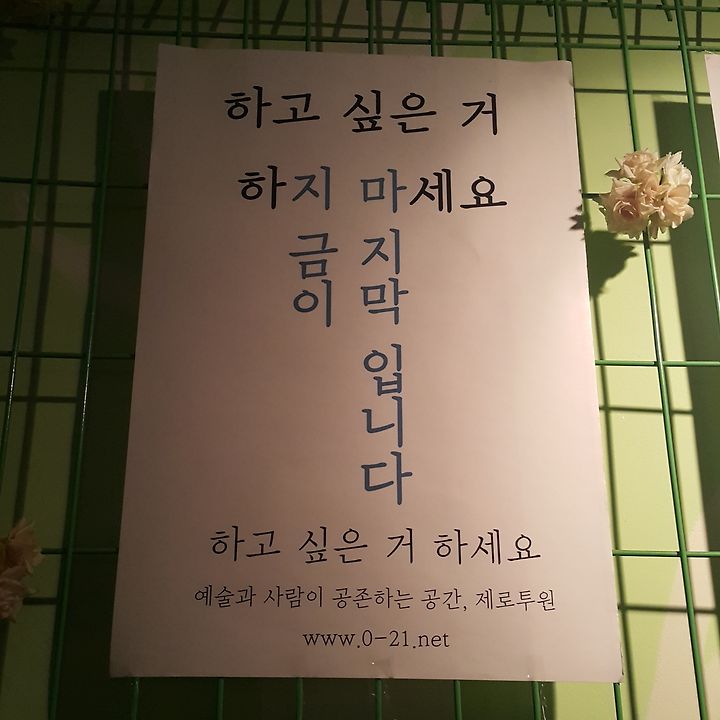 하고 싶은 거
하지 마세요
금 지
이 막
입
니
다
하고 싶은 거 하세요
예술과 사람이 공존하는 공간, 제로투원
www.0-21.net